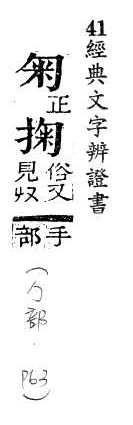 41經典文字辨證書
匊正掬俗又見収手部
(勹部. P63)